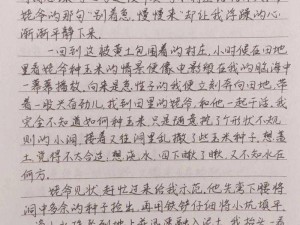 姥爷的那句“别着急,慢慢来”却让我浮躁的心
渐渐平静下来。
一回到这被黄土包围着的村庄,小时候在田地
里看姥爷种玉米的情景便像电影般在我的脑海中
一幕幕播放。向来是急性子的我便立刻奔向田地,带
着一股天奋劲儿找到田里的姥爷,和他一起干活。我
完全不知道如何种玉米,只是随意挖了个形状不规
则的小洞,接着又往洞里乱撒了些玉米种子,想盖
土觉得不太合适,想浇水,四下瞅了瞅,又不知水在
何方。
姥爷见状,赶忙过来给我示范。他先弯下腰将
洞中多余的种子捡出,再用铁锣仔细将小坑填平,